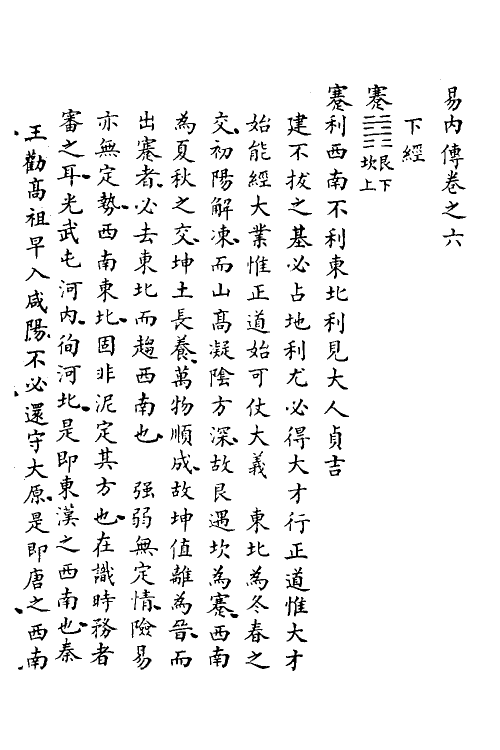 易內傳卷之六
下經
蹇 艮下坎上
蹇利西南不利東北利見大人貞吉
建不拔之基必占地利尤必得大才行正道惟大才
始能經大業惟正道始可仗大義　東北為冬春之
交、初陽解凍、而山高凝陰方深、故艮遇坎為蹇、西南
為夏秋之交、坤土長養、萬物順成、故坤值離為晉、而
出蹇者、必去東北而趨西南也、　强弱無定情、險易
亦無定勢、西南東北、固非泥定其方也、在識時務者
審之耳、光武屯河內、徇河北、是即東漢之西南也、秦
王勸高祖早入咸陽、不必還守大原、是即唐之西南